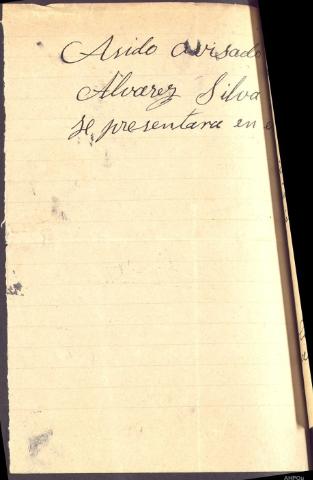 Asido avisado
Alvarez Silva
se presentara en e
AHPOu